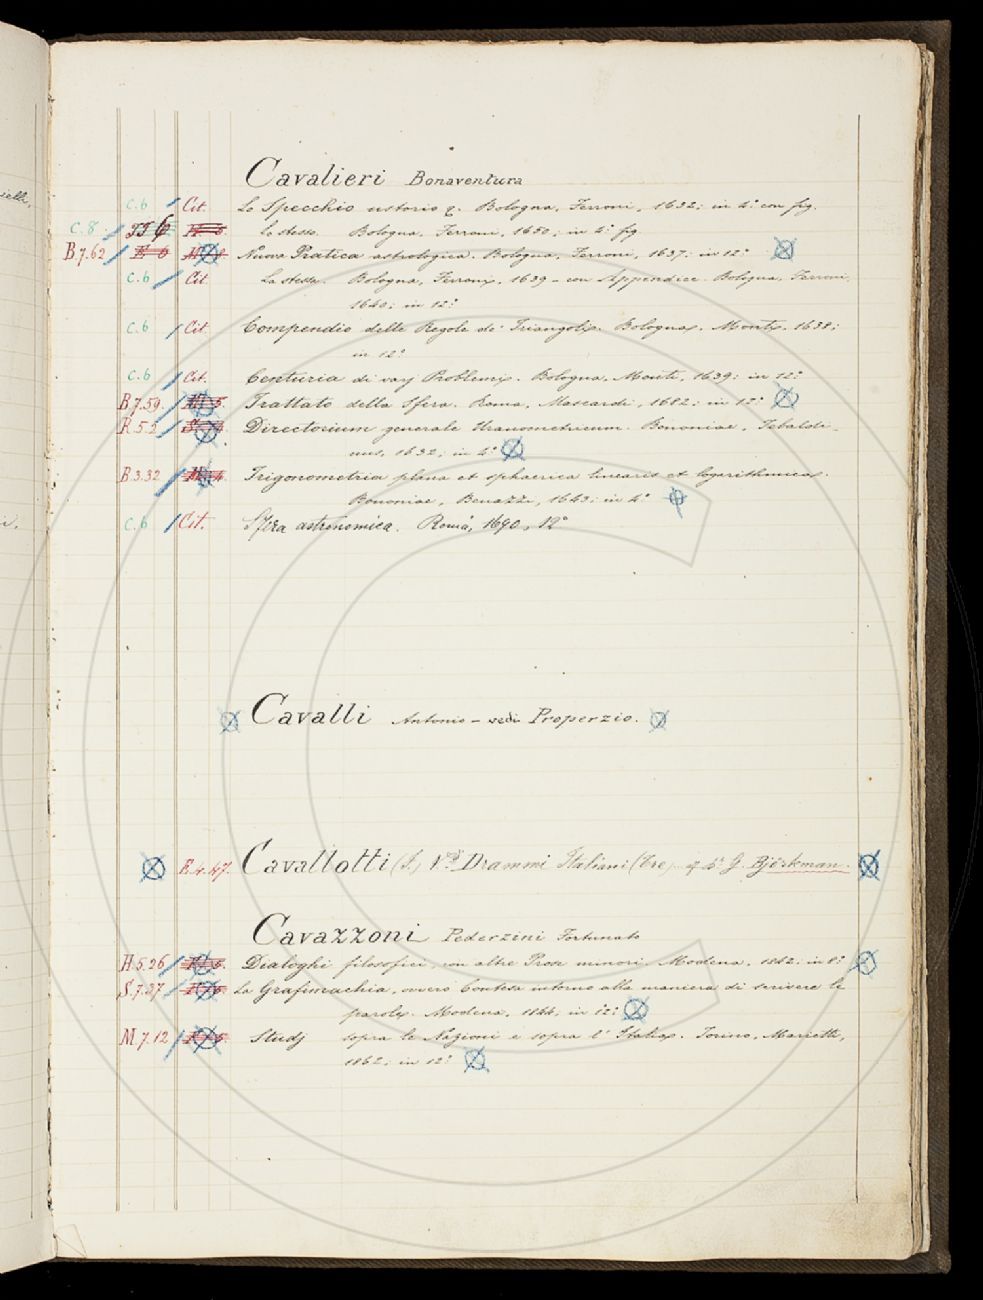 Cavalieri Bonaventura
C.6 Cit. Lo Specchio ustorio &. Bologna, Ferroni, 1632; in 4.º con fig.
C.8. 556 lo stesso. Bologna, Ferroni, 1650; in 4.º fig.
B.7.62 Nuova Pratica astrologica. Bologna, Ferroni, 1637; in 12º
C.6 Cit. La stessa. Bologna, Ferroni, 1639 – con Appendice. Bologna, Ferroni,
1640; in 12º
C.6 Cit. Compendio delle Regole de' Triangoli. Bologna. Monti. 1638;
in 12º
C.6 Cit. Centuria di varj Problemi. Bologna, Monti, 1639; in 12º
B.7.59. Trattato della Sfera. Roma, Mascardi, 1682; in 12º
R.5.2 Directorium generale Uranometricum. Bononiae, Tebaldi-
nus, 1632; in 4º
B.3.32 Trigonometria plana et sphaerica linearis et logarithmica
Bononiae, Benazzi, 1643; in 4º
C.6 Cit. Sfera astronomica. Roma, 1690, 12º
Cavalli Antonio – vedi Properzio.
R.4.47. Cavallotti (F.) Drammi Italiani (Tre) G. Björkman.
Cavazzoni Pederzini Fortunato
H.5.26 Dialoghi filosofici, con altre Prose minori. Modena. 1842. in 8º
S.7.27 La Grafimachia, ovvero Contesa intorno alla maniera di scrivere le
parole. Modena, 1844, in 12º
M.7.12 Studj sopra le Nazioni e sopra l' Italia. Torino, Marietti,
1862, in 12º